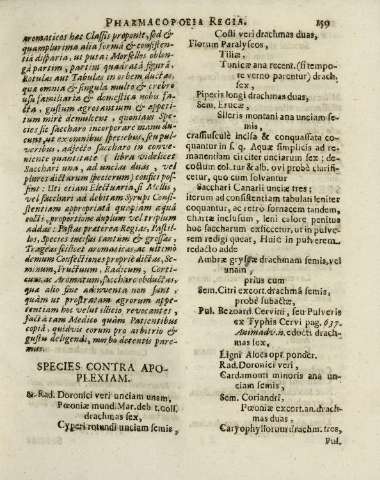 PHARMACOPOEIA REGIA. 159
aromaticos hæc Classis proponit, sed &
quamplurima alia formâ & consisten-
tiâ disparia, ut puta: Morsellos oblon-
gâ partim, partim quadratâ figurâ,
Rotulas aut Tabulas in orbem ductas,
quæ omnia & singula multo & crebro
usu familiaria & domestica nobis fa-
cta, gustum egrotantium & appeti-
tum mirè demulcent, quoniam Spe-
cies sic saccharo incorporare manu du-
cunt, ut ex omnibus speciebus, seu pul-
veribus, adjecto saccharo in conve-
niente quantitate ( libra videlicet
Sacchari una, ad uncias duas, vel
plures dictarum specierum) confici pos-
sint: Uti etiam Electuaria, si Mellis,
vel sacchari ad debitam Syrupi Consi-
stentiam appropriatâ quapiam aquâ
cocti, proportione duplum vel triplum
addas: Pastas præterea Regias, Pastil-
los, Species incisas tantum & grossas:
Trageas scilicet aromaticas: ac ultimò
demum Confectiones propriè dictas, Se-
minum, Fructuum, Radicum, Corti-
cum, ac Aromatum, saccharo obductas,
quæ alio fine adinventa non sunt,
quàm ut prostratam ægrorum appe-
tentiam hoc velut illicio revocantes,
suciatam Medico quàm Patientibus
copiâ, quidvis eorum pro arbitrio &
gustu deligendi, morbo detentis pare-
mus.
SPECIES CONTRA APO-
PLEXIAM.
℞. Rad. Doronici veri unciam unam,
Pœoniæ mund. Mar. deb t. coll.
drachmas sex,
Cyperi rotundi unciam semis,
Costi veri drachmas duas,
Florum Paralyseos,
Tiliæ,
Tunicæ ana recent. (si tempo-
re verno parentur) drach.
sex,
Piperis longi drachmas duas,
Sem. Erucæ,
Sileris montani ana unciam se-
mis,
crassiusculè incisa & conquassata co-
quantur in s. q. Aquæ simplicis ad re-
manentiam circiter unciarum sex; de-
coctum col.tur & alb. ovi probè clarifi-
cetur, quo cum solvantur
Sacchari Canarii unciæ tres;
iterum ad consistentiam tabulati leniter
coquantur, ac retrò fornacem tandem,
chartæ inclusum, leni calore penitus
hoc saccharum exsiccetur, ut in pulve-
rem redigi queat, Huic in pulverem
redacto adde
Ambræ gryseæ drachmam semis, vel
unam,
prius cum
Sem. Citri excort. drachmâ semis,
probè subactæ,
Pul. Bezoard Cervini, seu Pulveris
ex Typhis Cervi pag. 637.
Animadv. n. edocti drach-
mas sex,
Ligni Aloës opt. ponder.
Rad. Doronici veri,
Cardamomi minoris ana un-
ciam semis,
Sem. Coriandri,
Pœoniæ excort. an. drach-
mas duas,
Caryophyllorum drachm. tres,
Pul.